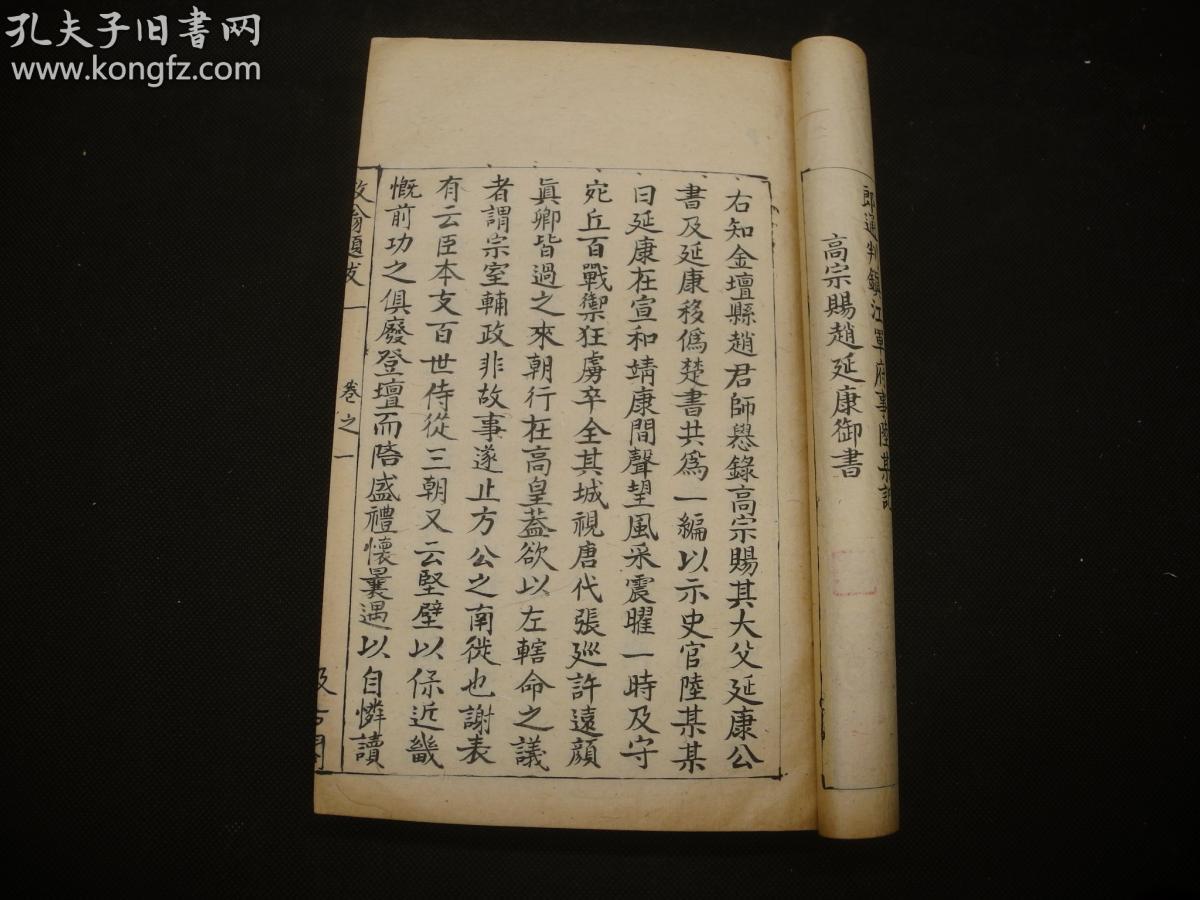 孔夫子旧书网
www.kongfz.com
郎通判鎮江軍府事陸某謹
高宗賜趙延康御書
右知金壇縣趙君師㥽錄高宗賜其大父延康公
書及延康移僞楚書共爲一編以示史官陸某某
曰延康在宣和靖康間聲望風采震曜一時及守
宛丘百戰禦狂虜卒全其城視唐代張巡許遠顔
眞卿皆過之來朝行在高皇葢欲以左轄命之議
者謂宗室輔政非故事遂止方公之南徙也謝表
有云臣本支百世侍從三朝又云堅壁以保近畿
慨前功之俱廢登壇而陪盛禮懷曩遇以自憐讀
放翁題跋 卷之一 汲古閣